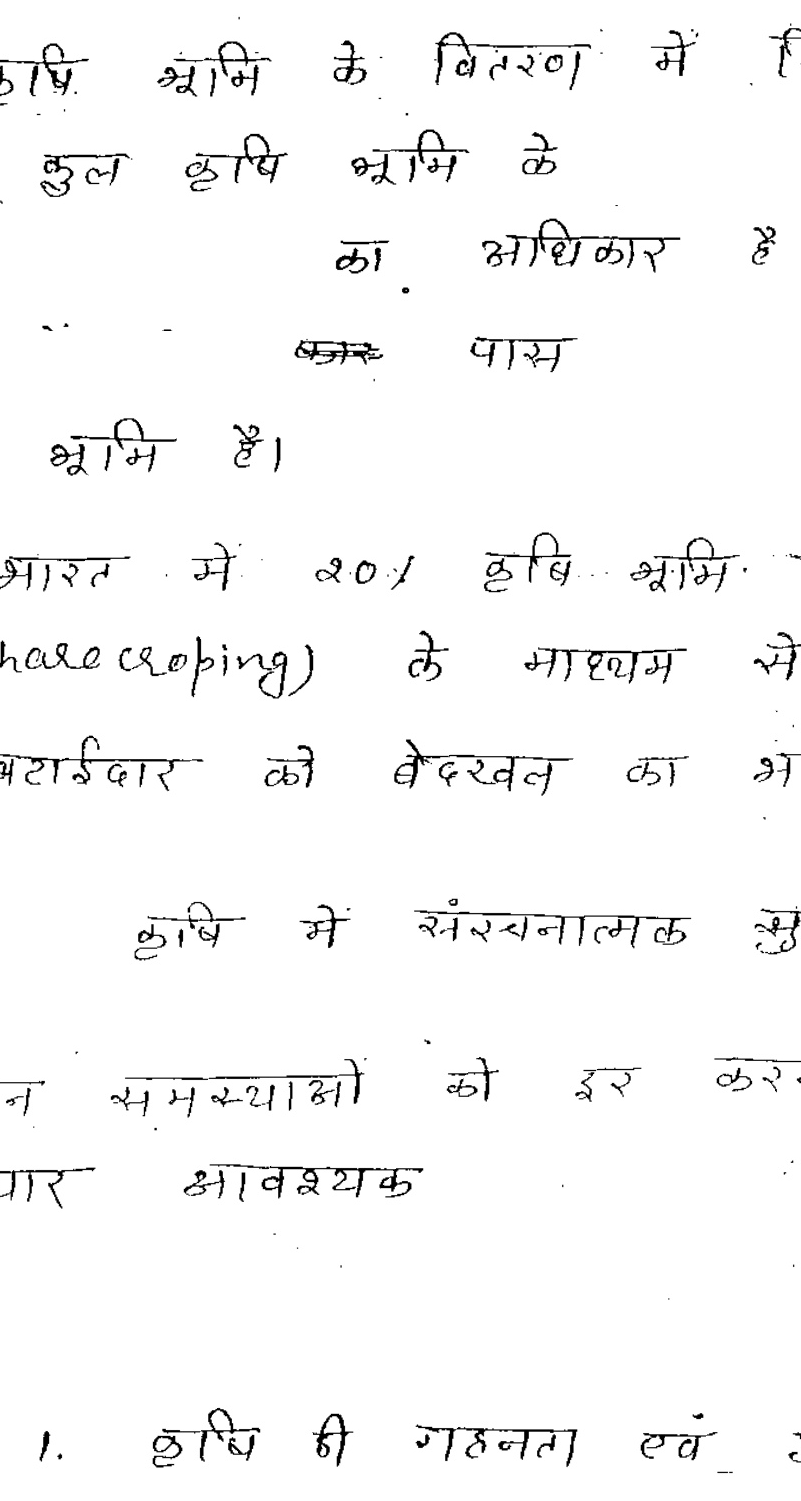 कृषि भूमि के वितरण में
कुल कृषि भूमि के
का अधिकार है
पास
भूमि है।
भारत में 20% कृषि भूमि
harecroping) के माध्यम से
बटाईदार को बेदखल का भ
कृषि में संरचनात्मक सु
न समस्याओं को दूर कर
आवश्यक
1. कृषि की गहनता एवं